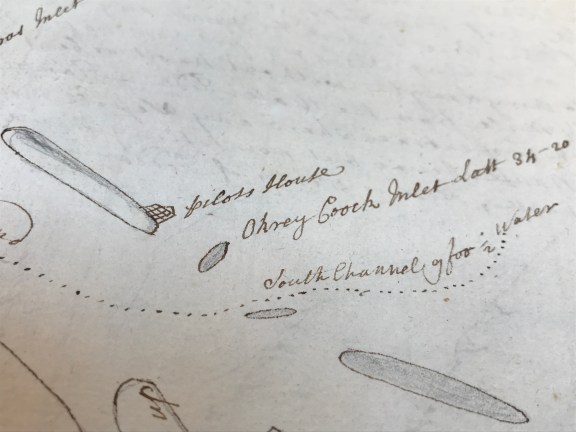 Inlet
Pilots House
Okrey Coock Inlet Latt 34-20
South Channel 9 foo ½ Water